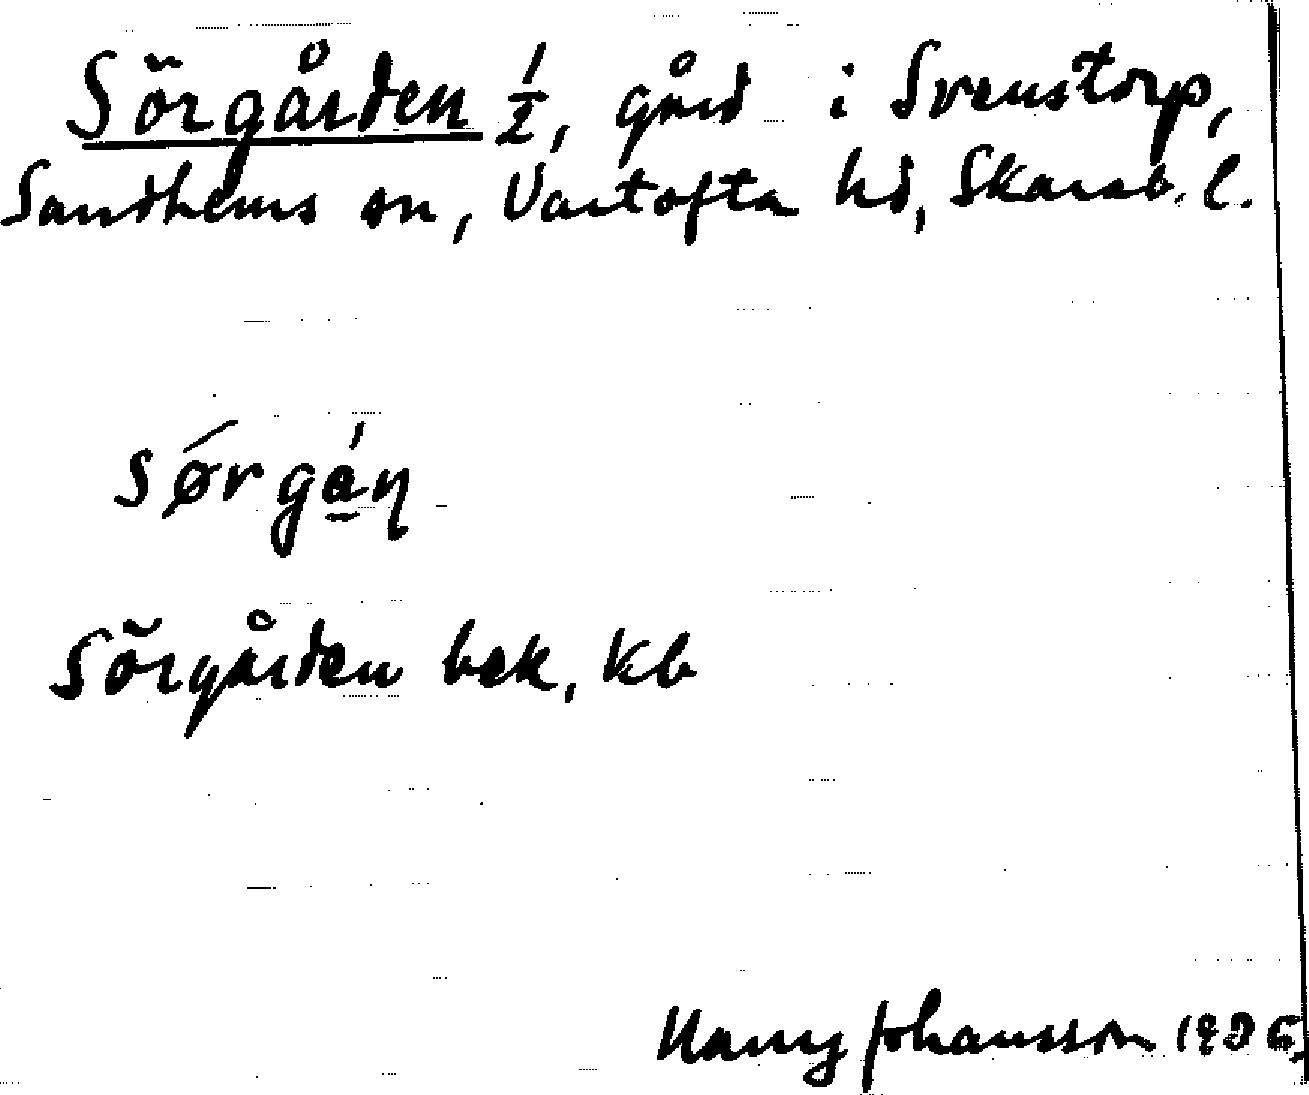 Sörgården 1/2, gård i Svenstorp,
Sandhems sn, Vartofta hd, Skarab. l.
sǿrgá̱ŋ
Sörgården bek, kb
Harry Johansson 1906